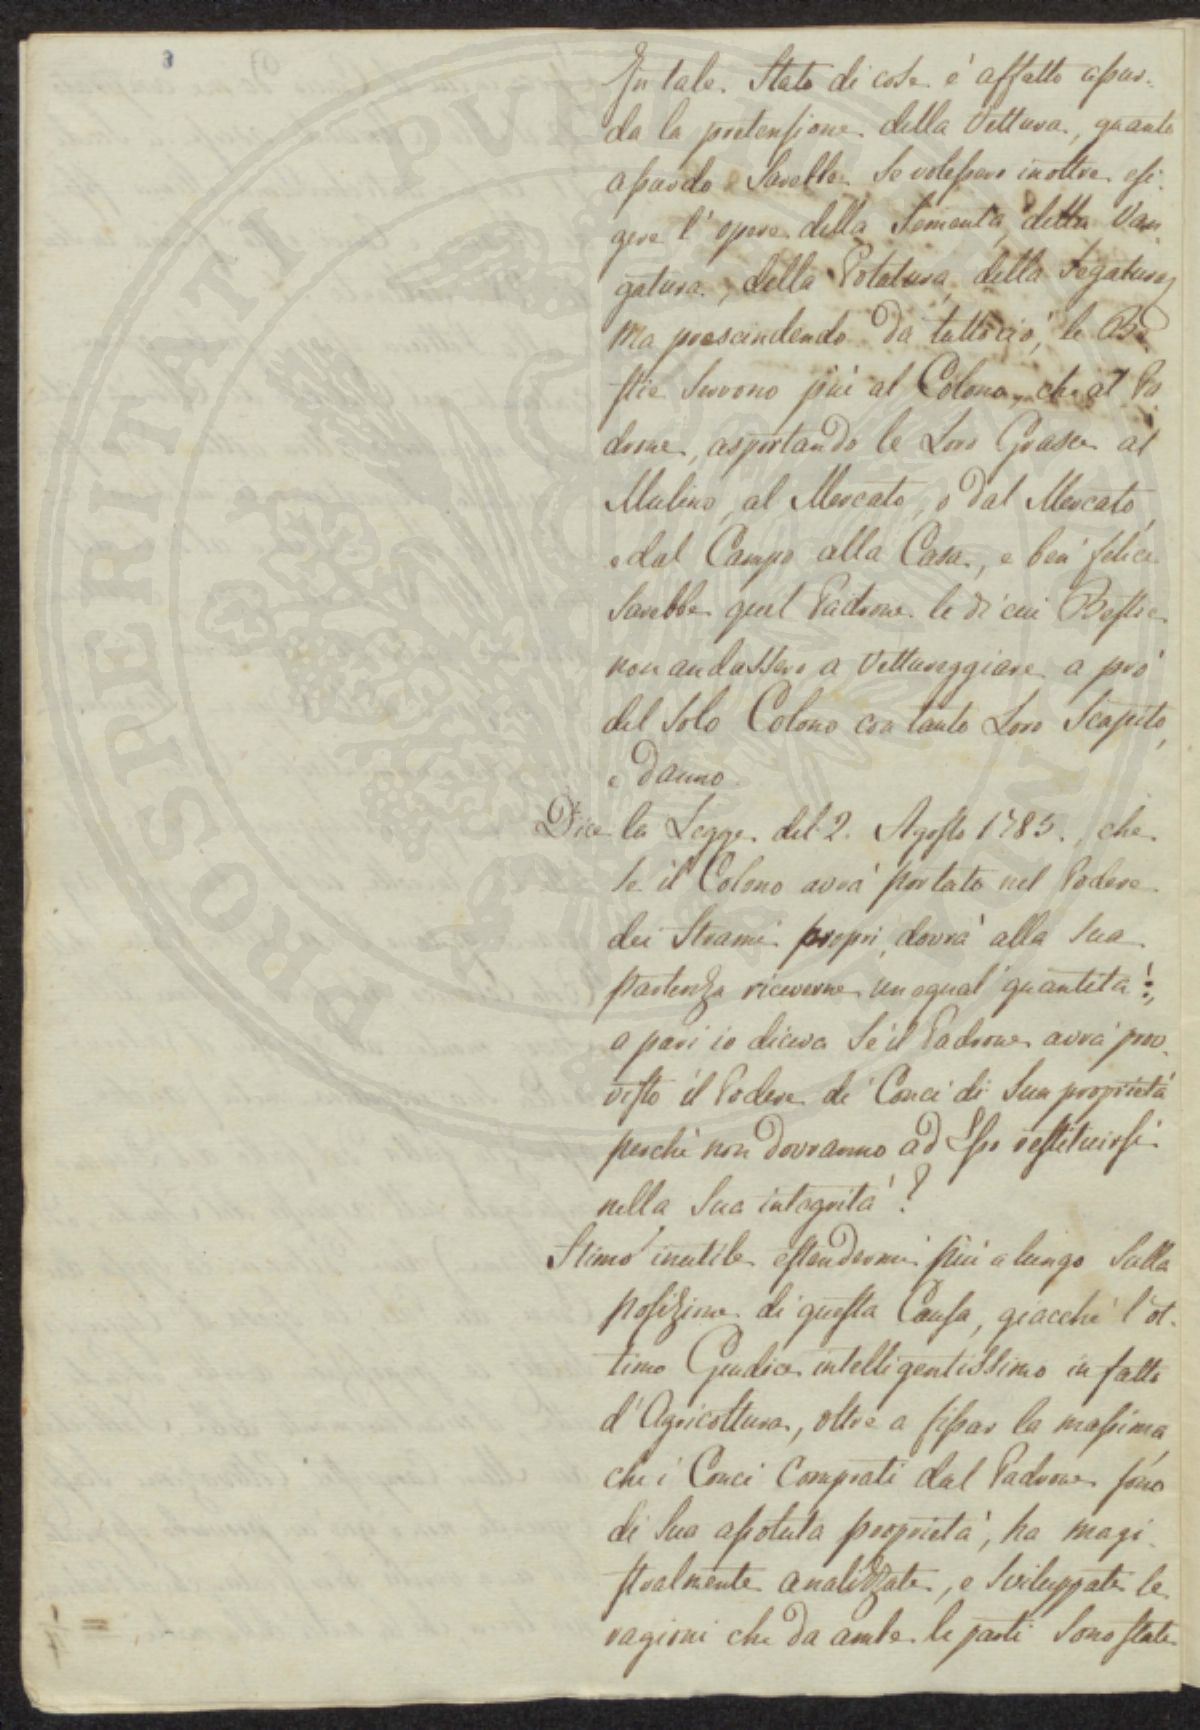 8
In tale Stato di cose è affatto assur-
da la pretensione della Vettura, quanto
assurdo Sarebbe Se volessero inoltre esi-
gere l'opere della Sementa, della Van
gatura, della Potatura, della Segatura;
Ma prescindendo da tuttociò, le Be
stie Servono più al Colono, che al Pa
drone, asportando le Loro Grasce al
Mulino, al Mercato, o dal Mercato,
e dal Campo alla Casa, e ben felice
Sarebbe quel Padrone le di cui Bestie
non andassero a Vettureggiare a prò
del Solo Colono con tanto Loro Scapito,
e danno.
Dice la Legge del 2. Agosto 1785., che
Se il Colono avrà portato nel Podere
dei Strami propri, dovrà alla Sua
partenza riceverne un egual' quantità:
a pari io diceva Se il Padrone avrà prov-
visto il Podere di Conci di Sua proprietà
perchè non dovranno ad Esso restituirsi
nella Sua integrità?
Stimo inutile estendermi più a lungo Sulla
posizione di questa Causa, giacchè l'ot-
timo Giudice intelligentissimo in fatto
d'Agricoltura, oltre a fissar la massima,
che i Conci Comprati dal Padrone sono
di Sua assoluta proprietà, ha magi-
stralmente analizzate, e Sviluppate le
ragioni che da ambe le parti Sono state
PROSPERITATI PVBLICAE